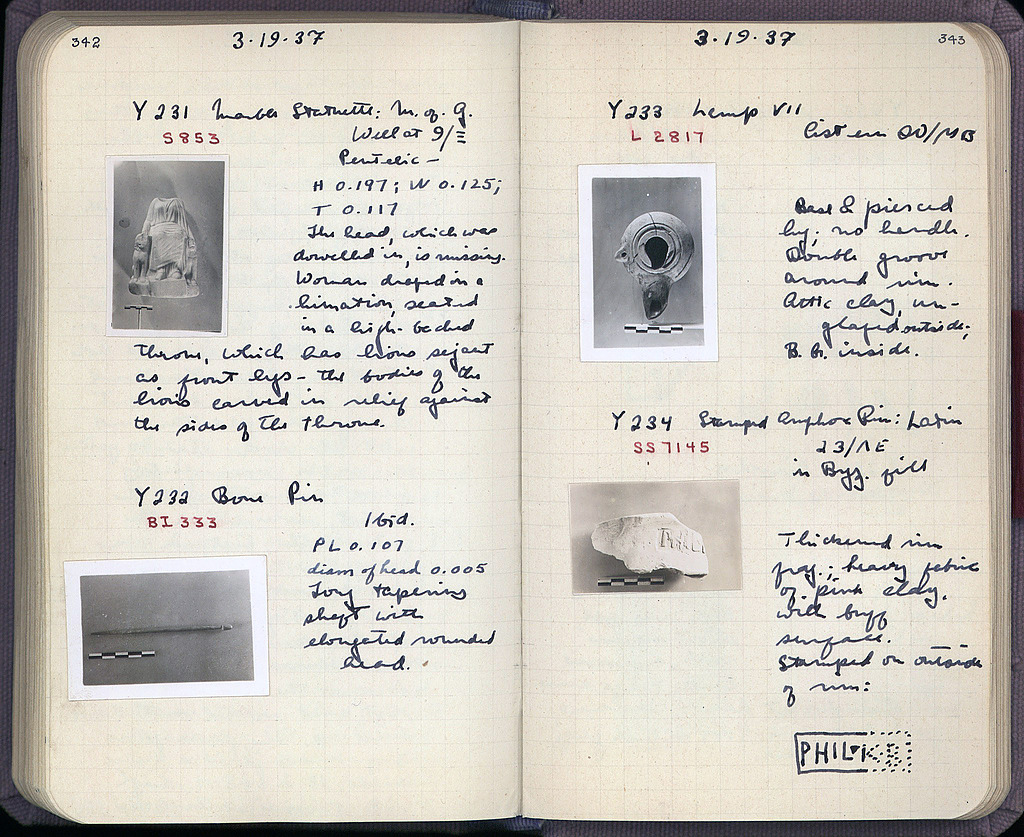 342
3·19·37
Y 231 Marble Statuette: M. of G.
S 853
Well at 9/Ξ
Pentelic –
H 0.197; W 0.125;
T 0.117
The head, which was
dowelled in, is missing.
Woman draped in a
himation, seated
in a high-backed
throne, which has lions sejant
as front legs – the bodies of the
lions carved in relief against
the sides of the throne.
Y 232 Bone Pin
BI 333
Ibid.
PL 0.107
diam of head 0.005
Long tapering
shaft with
elongated rounded
head.
343
3·19·37
Y 233 Lamp VII
L 2817
Cistern
Base & pierced
lug; no handle.
Double groove
around rim.
Attic clay, un-
glazed outside;
B. Gl. inside.
Y 234 Stamped Amphora Rim: Latin
SS 7145
23/ΛΕ
in Byz. fill
Thickened rim
frag.; heavy fabric
of pink clay,
with buff
surface.
Stamped on outside
of rim:
PHIL